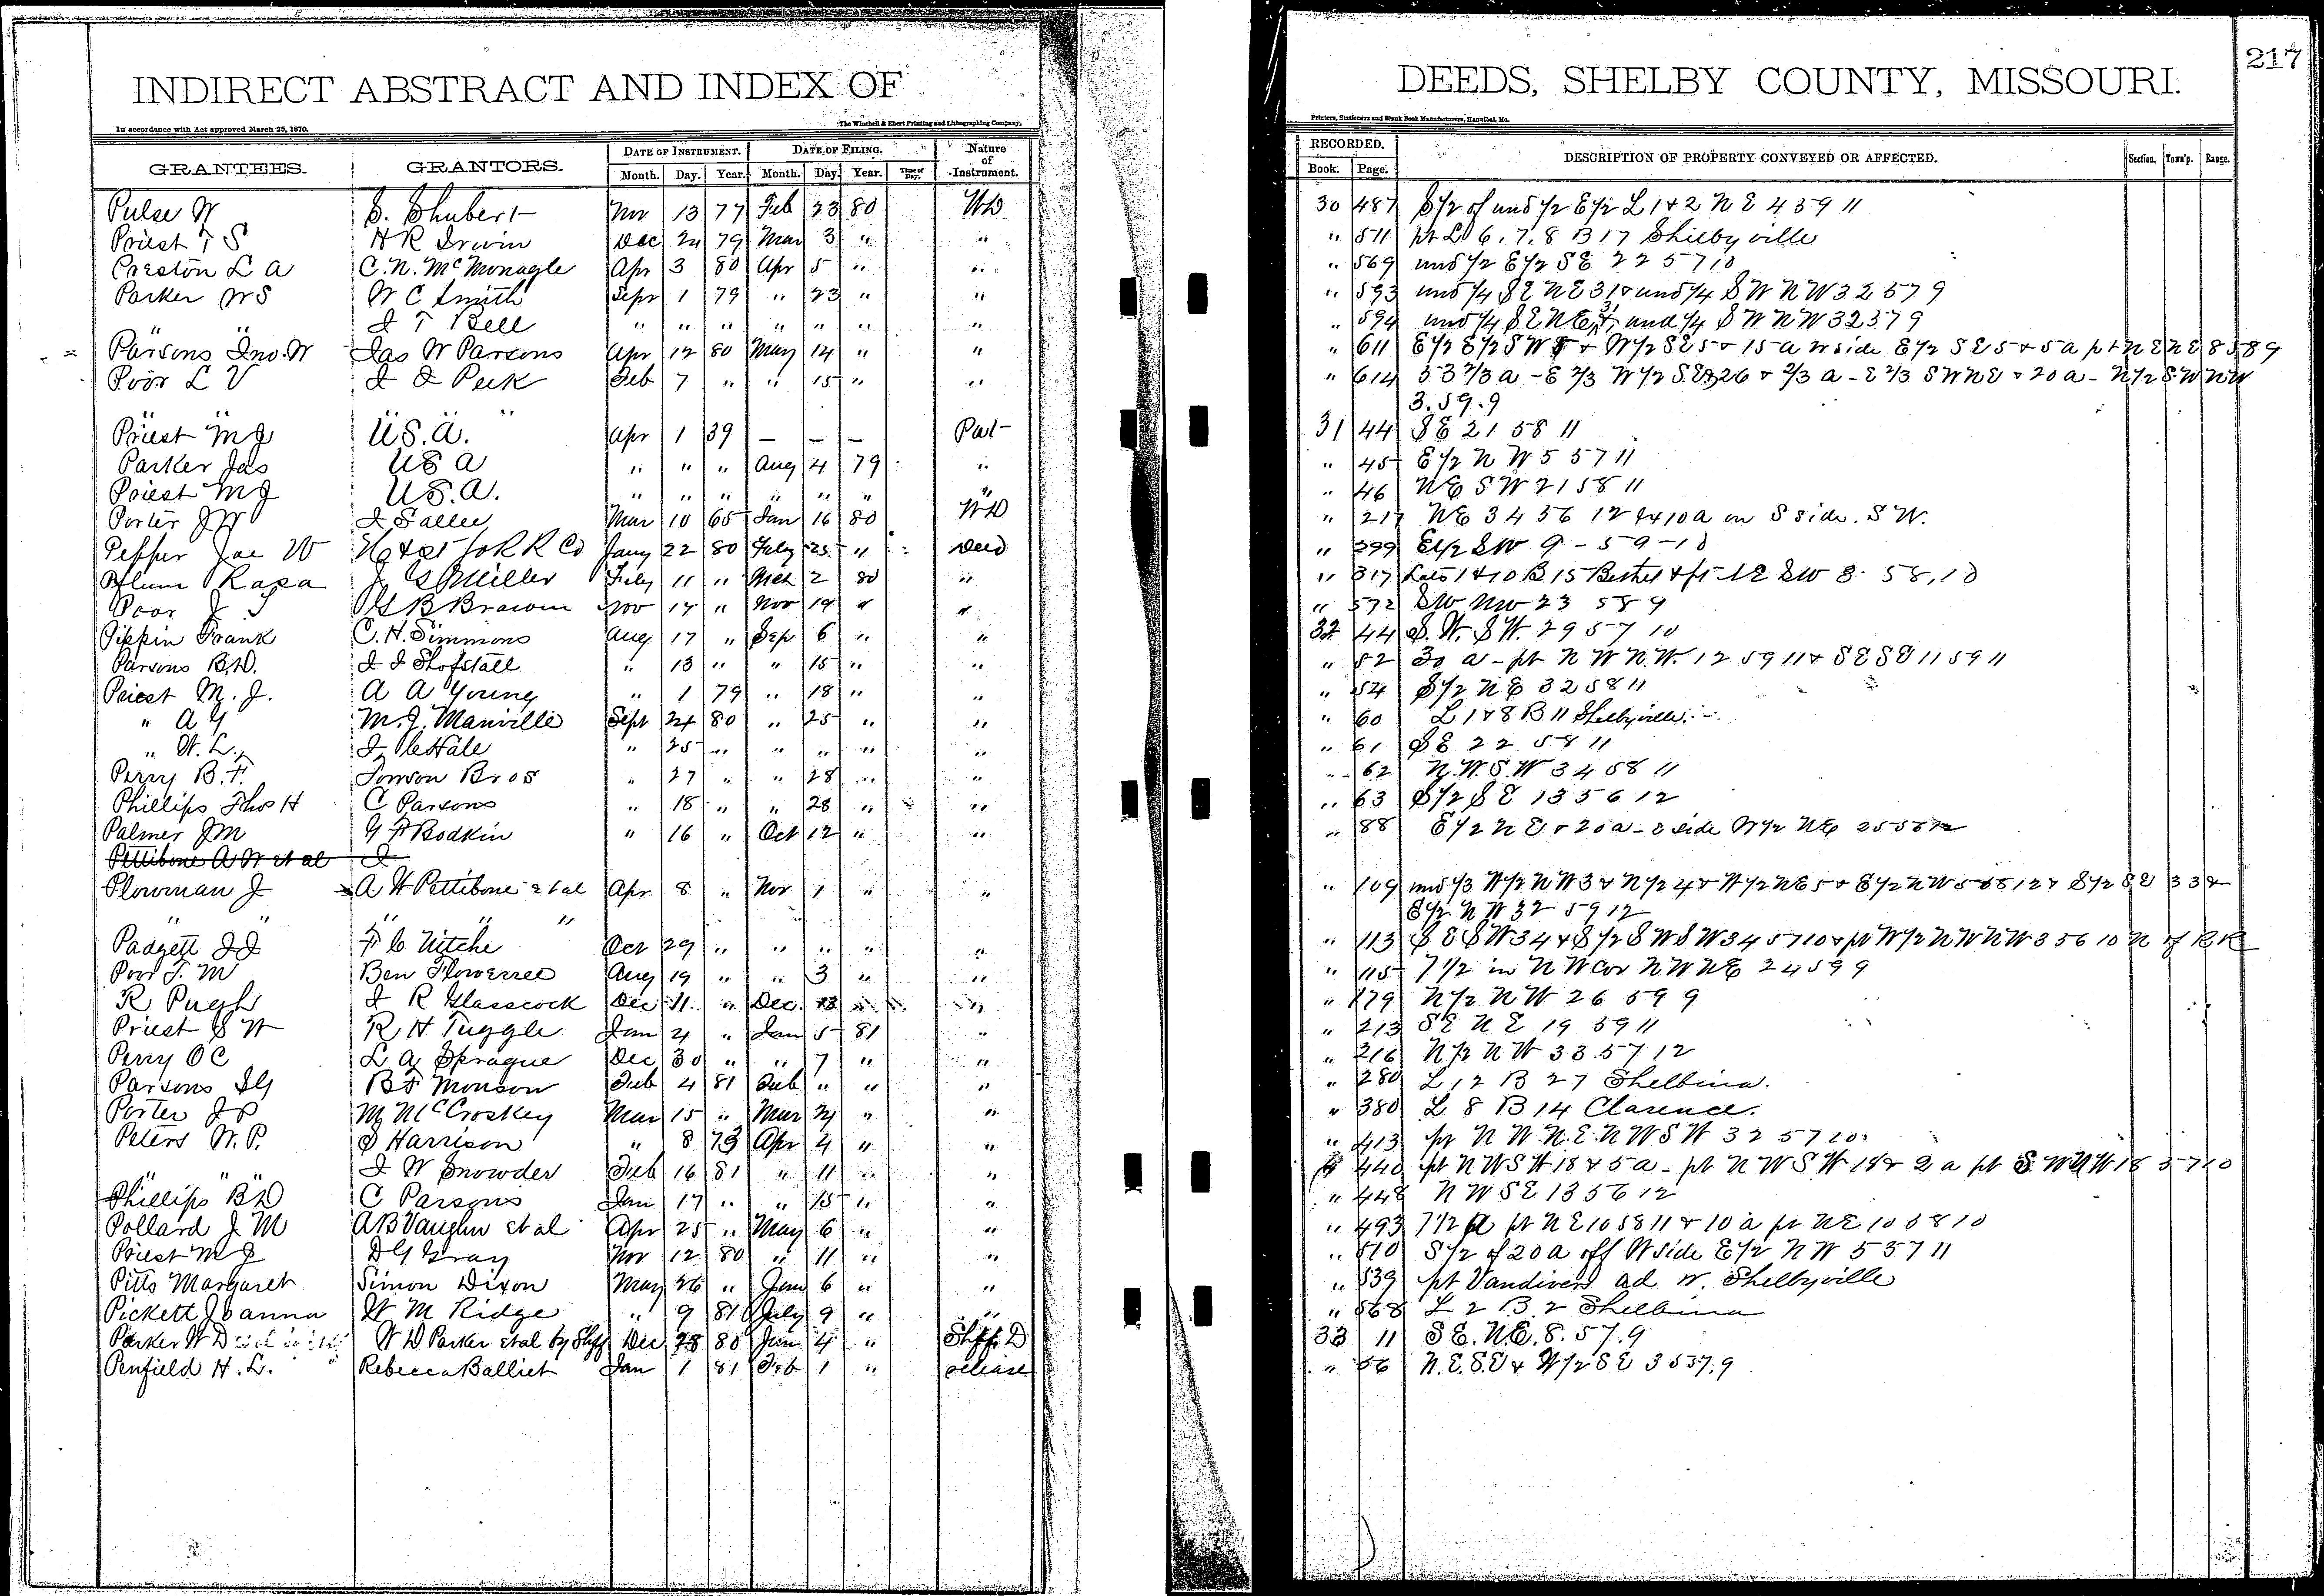 INDIRECT ABSTRACT AND INDEX OF DEEDS, SHELBY COUNTY, MISSOURI. 217
In accordance with Act approved March 25, 1870. The Winchell & Ebert Printing and Lithographing Company, Printers, Stationers and Blank Book Manufacturers, Hannibal, Mo.
GRANTEES. GRANTORS. DATE OF INSTRUMENT. DATE OF FILING. Nature of Instrument. RECORDED. DESCRIPTION OF PROPERTY CONVEYED OR AFFECTED. Section. Town'p. Range.
Month. Day. Year. Month. Day. Year. Time of Day. Book. Page.
Pulse W S. Shubert Nov 13 77 Feb 23 80 WD 30 487 S 1/2 of und 1/2 E 1/2 L 1 & 2 N E 4 59 11
Priest T S H R Irwin Dec 24 79 Mar 3 " " " 511 pt L 6, 7, 8 B 17 Shelbyville
Preston L A C. N. McMonagle Apr 3 80 Apr 5 " " " 569 und 1/2 E 1/2 S E 22 57 10
Parker W S W C Smith Sept 1 79 " 23 " " " 593 und 1/4 S E N E 31 & und 1/4 S W N W 32 57 9
" " J T Bell " " " " " " " " 594 und 1/4 S E N E 31 & und 1/4 S W N W 32 57 9
Parsons Jno. W Jas W Parsons Apr 12 80 May 14 " " " 611 E 1/2 E 1/2 S W 5 & W 1/2 S E 5 & 15 a W side E 1/2 S E 5 & 5 a pt N E N E 8 58 9
Poor L V J J Peek Feb 7 " " 15 " " " 614 53 2/3 a - E 2/3 W 1/2 S E 26 & 2/3 a - E 2/3 S W N E & 20 a - N 1/2 S W N W
" " " " 3. 59. 9
Priest M J U.S.A. Apr 1 39 — — — Pat 31 44 S E 21 58 11
Parker Jas U S A " " " Aug 4 79 " " 45 E 1/2 N W 5 57 11
Priest M J U.S.A. " " " " " " " " 46 N E S W 21 58 11
Porter J W J Sallee Mar 10 65 Jan 16 80 WD " 217 N E 34 56 12 & 10 a on S side. S W.
Pepper Jae W H & St Jo R R Co Jany 22 80 Feby 25 " Deed " 299 E 1/2 S W 9 - 59 - 10
Pflum Rasa J G Miller Feby 11 " Mch 2 80 " " 317 Lots 1 & 10 B 15 Bethel & pt N E S W 8. 58, 10
Poor J T G B Brown Nov 17 " Nov 19 " " " 572 S W N W 23 58 9
Pippin Frank C. H. Simmons Aug 17 " Sep 6 " " 32 44 S. W. S W. 29 57 10
Parsons B. D. J J Shofstall " 13 " " 15 " " " 52 30 a - pt N W N. W. 12 59 11 & S E S E 11 59 11
Priest M. J. A A Young " 1 79 " 18 " " " 54 S 1/2 N E 32 58 11
" A Y M. J. Manville Sept 24 80 " 25 " " " 60 L 1 & 8 B 11 Shelbyville
" W. L. J. C Hale " 25 " " " " " " 61 S E 22 58 11
Perry B. F. Towson Bros " 27 " " 28 " " " 62 N. W. S. W 34 58 11
Phillips Thos H C Parsons " 18 " " 28 " " " 63 S 1/2 S E 13 56 12
Palmer J M G F Bodkin " 16 " Oct 12 " " " 88 E 1/2 N E & 20 a - E side W 1/2 N E 25 58 12
Pettibone A W et al J
Plowman J A W Pettibone et al Apr 8 " Nov 1 " " " 109 und 1/3 W 1/2 N W 3 & N 1/2 4 & W 1/2 N E 5 & E 1/2 N W 5 58 12 & S 1/2 S E 33 &
" " " " E 1/2 N W 32 59 12
Padgett J J F C Nitche Oct 29 " " " " " " 113 S E S W 34 & S 1/2 S W S W 34 57 10 & pt W 1/2 N W N W 3 56 10 N of R R
Poor T. M Ben Flowerree Aug 19 " " 3 " " " 115 7 1/2 in N W Cor N W N E 24 59 9
R Pugh J R Glasscock Dec 11 " Dec. 13 " " " 179 N 1/2 N W 26 59 9
Priest S W R H Tuggle Jan 4 " Jan 5 81 " " 213 S E N E 19 59 11
Perry O C L A Sprague Dec 30 " " 7 " " " 216 N 1/2 N W 33 57 12
Parsons S G B F Monson Feb 4 81 Feb " " " " 280 L 12 B 27 Shelbina.
Porter J P M McCroskey Mar 15 " Mar 21 " " " 380 L 8 B 14 Clarence.
Peters W. P. S Harrison " 8 73 Apr 4 " " " 413 pt N W. N. E. N W S W 32 57 10.
" " " J W Snowder Feb 16 81 " 11 " " " 440 pt N W S W 18 & 5 a - pt N W S. W 18 & 2 a pt S W N W 18 57 10
Phillips B D C Parsons Jan 17 " " 15 " " " 448 N W S E 13 56 12
Pollard J M A B Vaughn et al Apr 25 " May 6 " " " 493 7 1/2 a pt N E 10 58 11 & 10 a pt N E 10 58 10
Priest M J D G Gray Nov 12 80 " 11 " " " 510 S 1/2 of 20 a off W side E 1/2 N W 5 57 11
Pitts Margaret Simon Dixon May 26 " June 6 " " " 539 pt Vandivers ad N. Shelbyville
Pickett Joanna W M Ridge " 9 81 July 9 " " " 568 L 2 B. 2 Shelbina
Parker W D W D Parker et al by Shff Dec 28 80 Jan 4 " Shff. D 33 11 S E. N. E. 8. 57. 9
Penfield H. L. Rebecca Balliet Jan 1 81 Feb 1 " release " 56 N. E. S. E & W 1/2 S E 3 5 37. 9